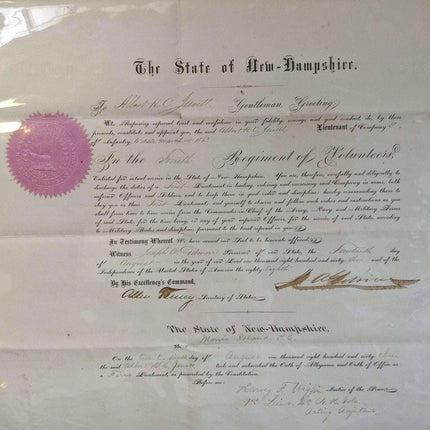 The State of New-Hampshire.
To Albert N. C. Jewett Gentleman, Greeting,
We, Reposing especial trust and confidence in your fidelity, courage and good conduct, do, by these
presents, constitute and appoint you, the said Albert N. C. Jewett Lieutenant of Company
of Infantry,
In the Regiment of Volunteers,
Enlisted for actual service in the State of New-Hampshire. You are, therefore, carefully and diligently to
discharge the duties of a Lieutenant in leading, ordering and exercising said Company in arms, both
inferior Officers and Soldiers, and to keep them in good order and discipline: hereby commanding them to
obey you as their Lieutenant, and yourself to observe and follow such orders and instructions as you
shall from time to time receive from the Commander in Chief of the Army, Navy and Military Forces
of said State, for the time being, or any of your superior Officers, for the service of said State, according
to Military Rules and discipline, pursuant to the trust reposed in you.
In Testimony Whereof, We have caused our Seal to be hereunto affixed.
Witness Joseph A. Gilmore Governor of our State, the day
of August in the year of our Lord one thousand eight hundred and sixty three and of the
Independence of the United States of America the eighty Eighth
By His Excellency's Command,
J. A. Gilmore
Allen Tenny Secretary of State.
The State of New-Hampshire.
Morris Island S. C.
On the day of August one thousand eight hundred and sixty three
the said Albert N. C. Jewett took and subscribed the Oath of Allegiance and Oath of Office as
a First Lieutenant, as prescribed by the Constitution.
Before me,
Henry F. Wiggin Justice of the Peace.
1st Lieut.
Acting Adjutant